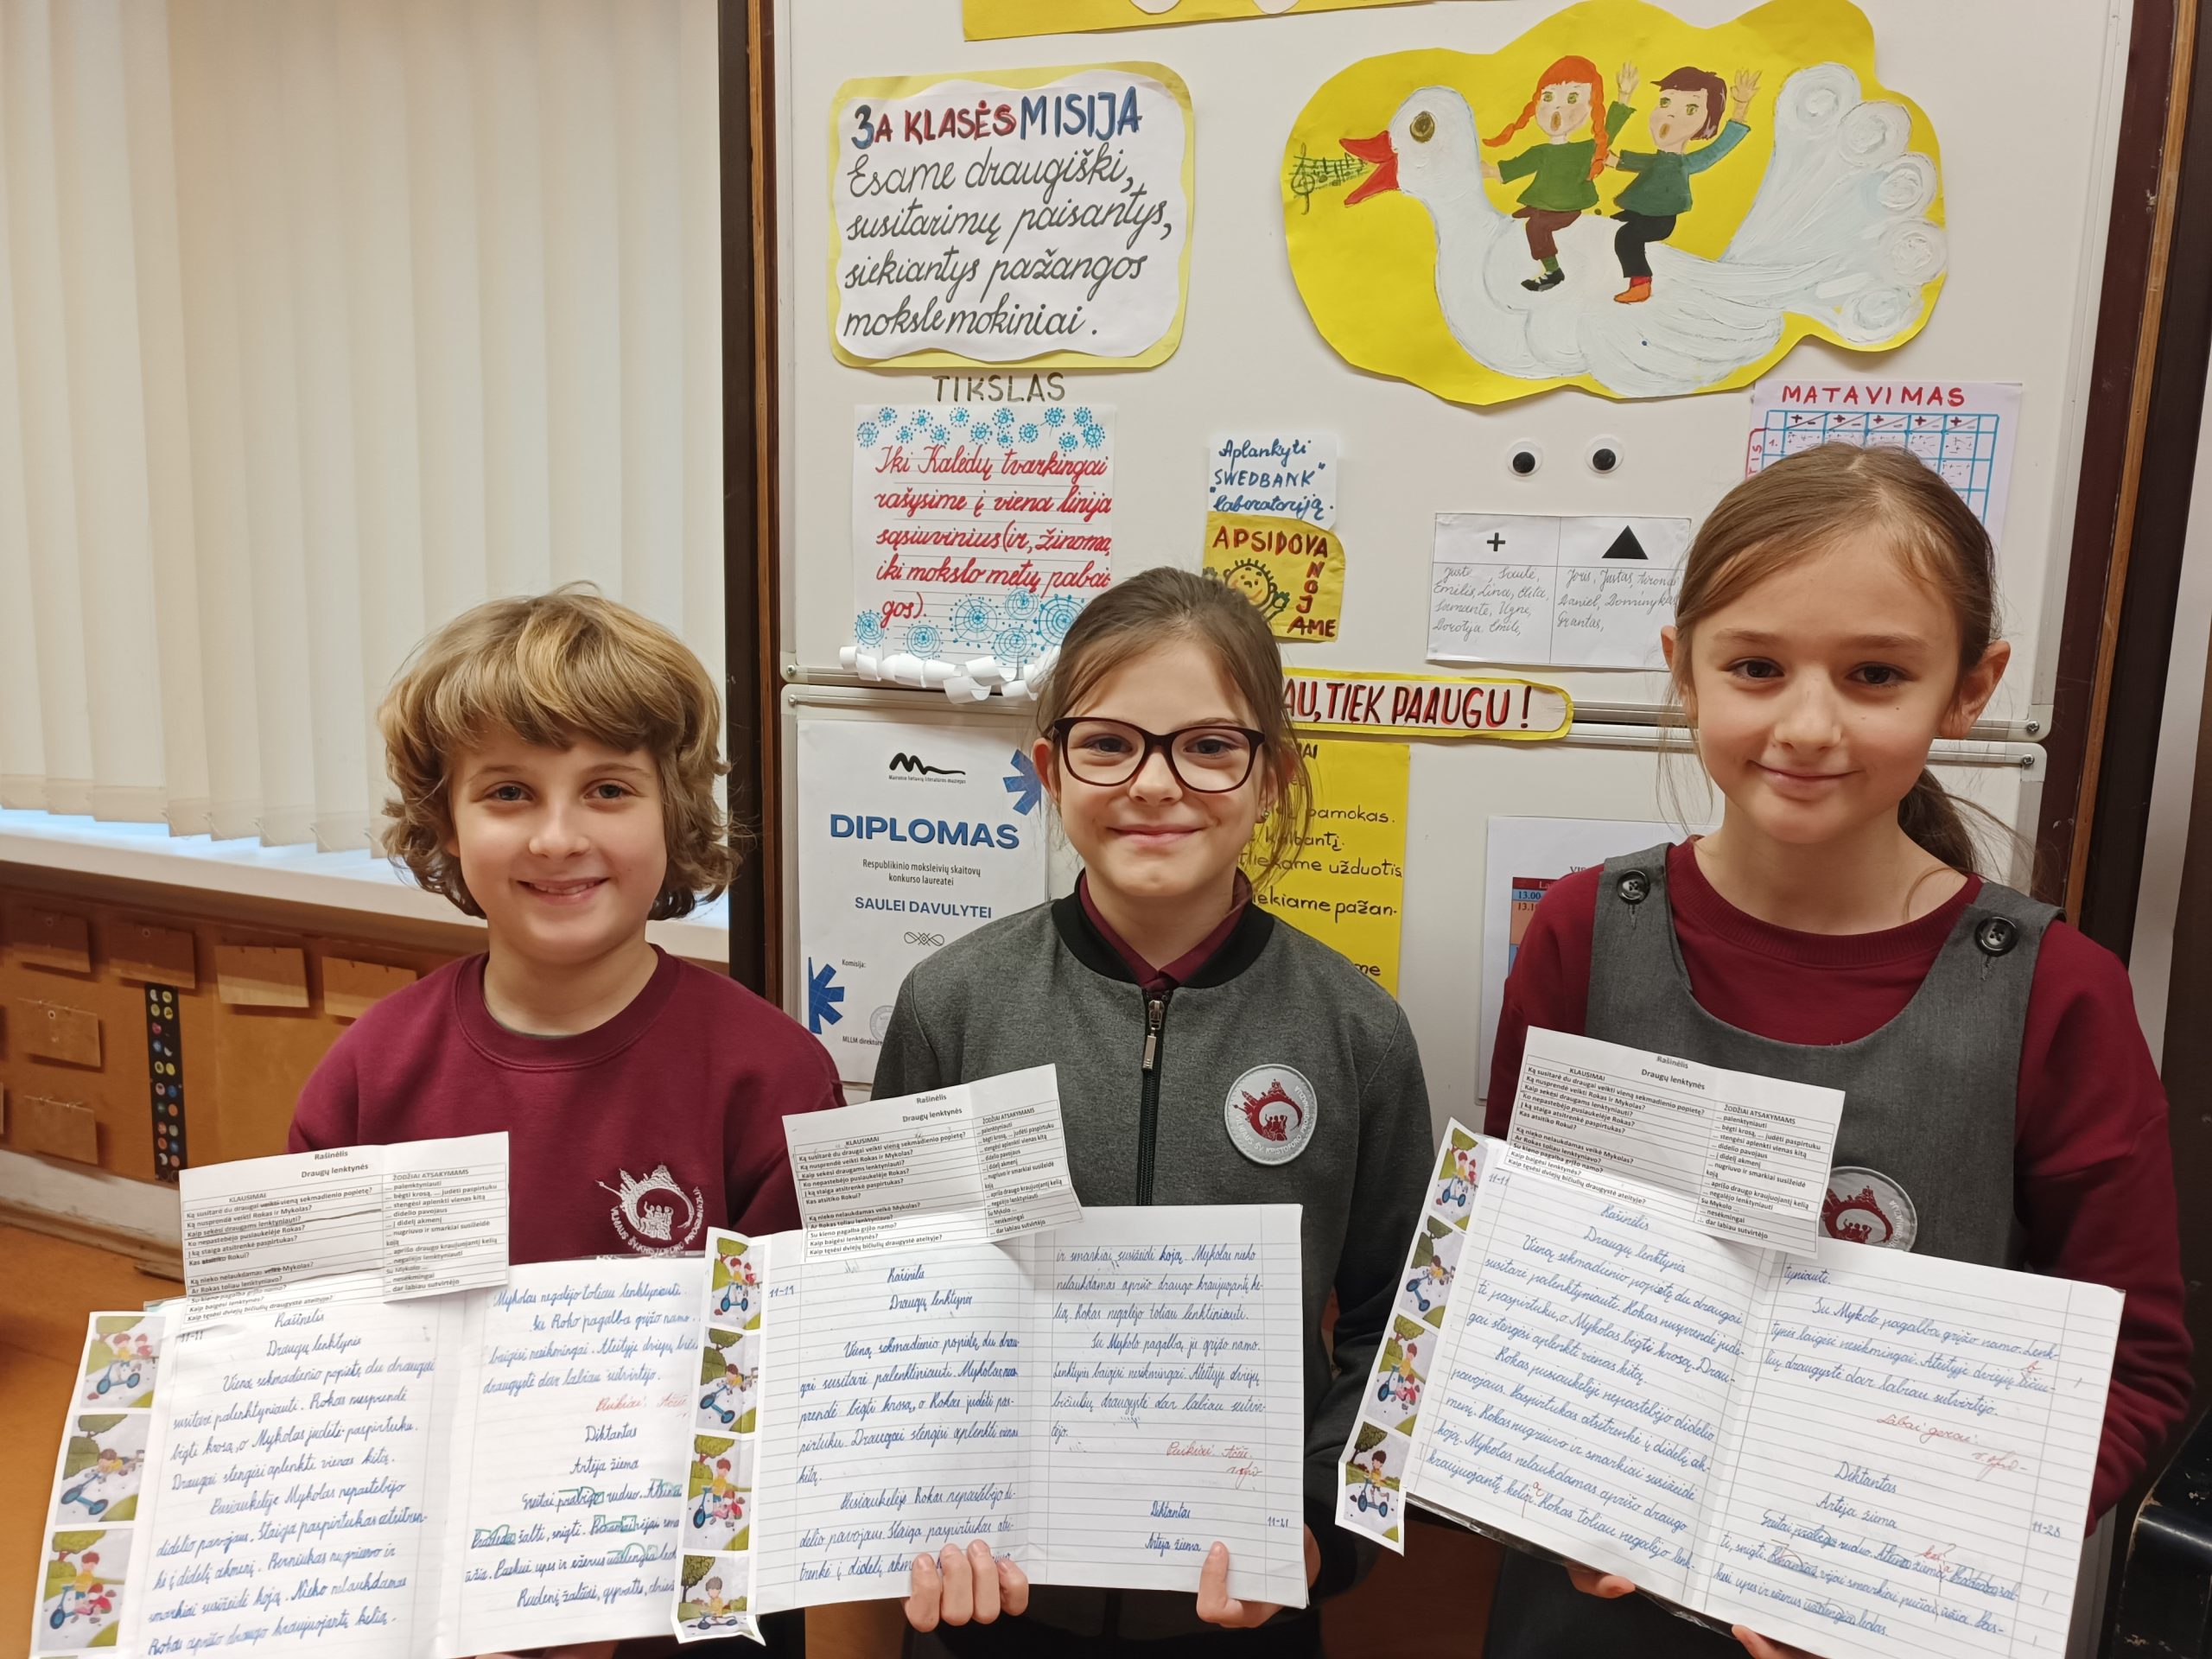 3A KLASĖS MISIJA
Esame draugiški,
susitarimų paisantys,
siekiantys pažangos
moksle mokiniai.
TIKSLAS
Iki Kalėdų tvarkingai
rašysime į viena linija
sąsiuvinius (ir, žinoma,
iki mokslo metų pabai-
gos).
Aplankyti
"SWEDBANK"
laboratoriją.
APSIDOVANOJAME
MATAVIMAS
+
Saulė,
Emilis, Lina,
Samantė, Ugnė,
Dorotėja
Joris, Justas,
Daniel, Dominykas
Grantas,
AU, TIEK PAAUGU!
pamokas.
užduotis
pažan-
Maironio lietuvių literatūros muziejus
DIPLOMAS
Respublikinio moksleivių skaitovų
konkurso laureatei
SAULEI DAVULYTEI
Komisija:
13.00
Rašinėlis
Draugų lenktynės
KLAUSIMAI
ŽODŽIAI ATSAKYMAMS
Ką susitarė du draugai veikti vieną sekmadienio popietę?
... palenktyniauti
Ką nusprendė veikti Rokas ir Mykolas?
... bėgti krosą, ... judėti paspirtuku
Kaip sekėsi draugams lenktyniauti?
... stengėsi aplenkti vienas kitą
Ko nepastebėjo pusiaukelėje Rokas?
... didelio pavojaus
Į ką staiga atsitrenkė paspirtukas?
... į didelį akmenį
Kas atsitiko Rokui?
... nugriuvo ir smarkiai susižeidė
koją
Ką nieko nelaukdamas veikė Mykolas?
... aprišo draugo kraujuojantį kelią
Ar Rokas toliau lenktyniavo?
... negalėjo lenktyniauti
Su kieno pagalba grįžo namo?
Su Mykolo ...
Kaip baigėsi lenktynės?
... nesėkmingai
Kaip tęsėsi dviejų bičiulių draugystė ateityje?
... dar labiau sutvirtėjo
11-11
Rašinėlis
Draugų lenktynės
Vieną sekmadienio popietę, du draugai
susitarė palenktyniauti. Rokas nusprendė
bėgti krosą, o Mykolas judėti paspirtuku.
Draugai stengėsi aplenkti vienas kitą.
Pusiaukelėje Mykolas nepastebėjo
didelio pavojaus. Staiga paspirtukas atsitren-
kė į didelį akmenį. Berniukas nugriuvo ir
smarkiai susižeidė koją. Nieko nelaukdamas
Rokas aprišo draugo kraujuojantį kelią.
Mykolas negalėjo toliau lenktyniauti.
Su Roko pagalba grįžo namo.
baigėsi nesėkmingai. Ateityje dviejų
draugystė dar labiau sutvirtėjo.
Puikiai! Ačiū
Diktantas
Artėja žiema
Greitai prabėgo ruduo.
šalti, snigti.
Paskui upes ir ežerus
Rudenį žalčiai, gyvatės,
Rašinėlis
Draugų lenktynės
Vieną sekmadienio popietę, du drau-
gai susitarė palenktiniauti. Mykolas nus-
prendė bėgti krosą, o Rokas judėti pas-
pirtuku. Draugai stengėsi aplenkti vienas
kitą.
Pusiaukelėje Rokas nepastebėjo di-
delio pavojaus. Staiga paspirtukas atsi-
trenkė į didelį
ir smarkiai susižeidė koją. Mykolas nieko
nelaukdamas aprišo draugo kraujuojantį ke-
lią. Rokas negalėjo toliau lenktiniauti.
Su Mykolo pagalba, jie grįžo namo.
Lenktynės baigėsi nesėkmingai. Ateityje dviejų
bičiulių draugystė dar labiau sutvir-
tėjo.
Puikiai! Ačiū.
Diktantas
11-21
Artėja žiema
11-11
Rašinėlis
Draugų lenktynės
Vieną sekmadienio popietę du draugai
susitarė palenktyniauti. Rokas nusprendė judė-
ti paspirtuku, o Mykolas bėgti krosą. Drau-
gai stengėsi aplenkti vienas kitą.
Rokas pusiaukelėje nepastebėjo didelio
pavojaus. Paspirtukas atsitrenkė į didelį ak-
menį. Rokas nugriuvo ir smarkiai susižeidė
koją. Mykolas nelaukdamas aprišo draugo
kraujuojantį kelią. Rokas toliau negalėjo lenk-
tyniauti.
Su Mykolo pagalba grįžo namo. Lenk-
tynės baigėsi nesėkmingai. Ateityje dviejų bičiu-
lių draugystė dar labiau sutvirtėjo.
Labai gerai!
Diktantas
Artėja žiema
11-28
Greitai prabėgo ruduo.
ti, snigti. vėjai smarkiai pučia, ūžia. Pas-
kui upes ir ežerus ledas.